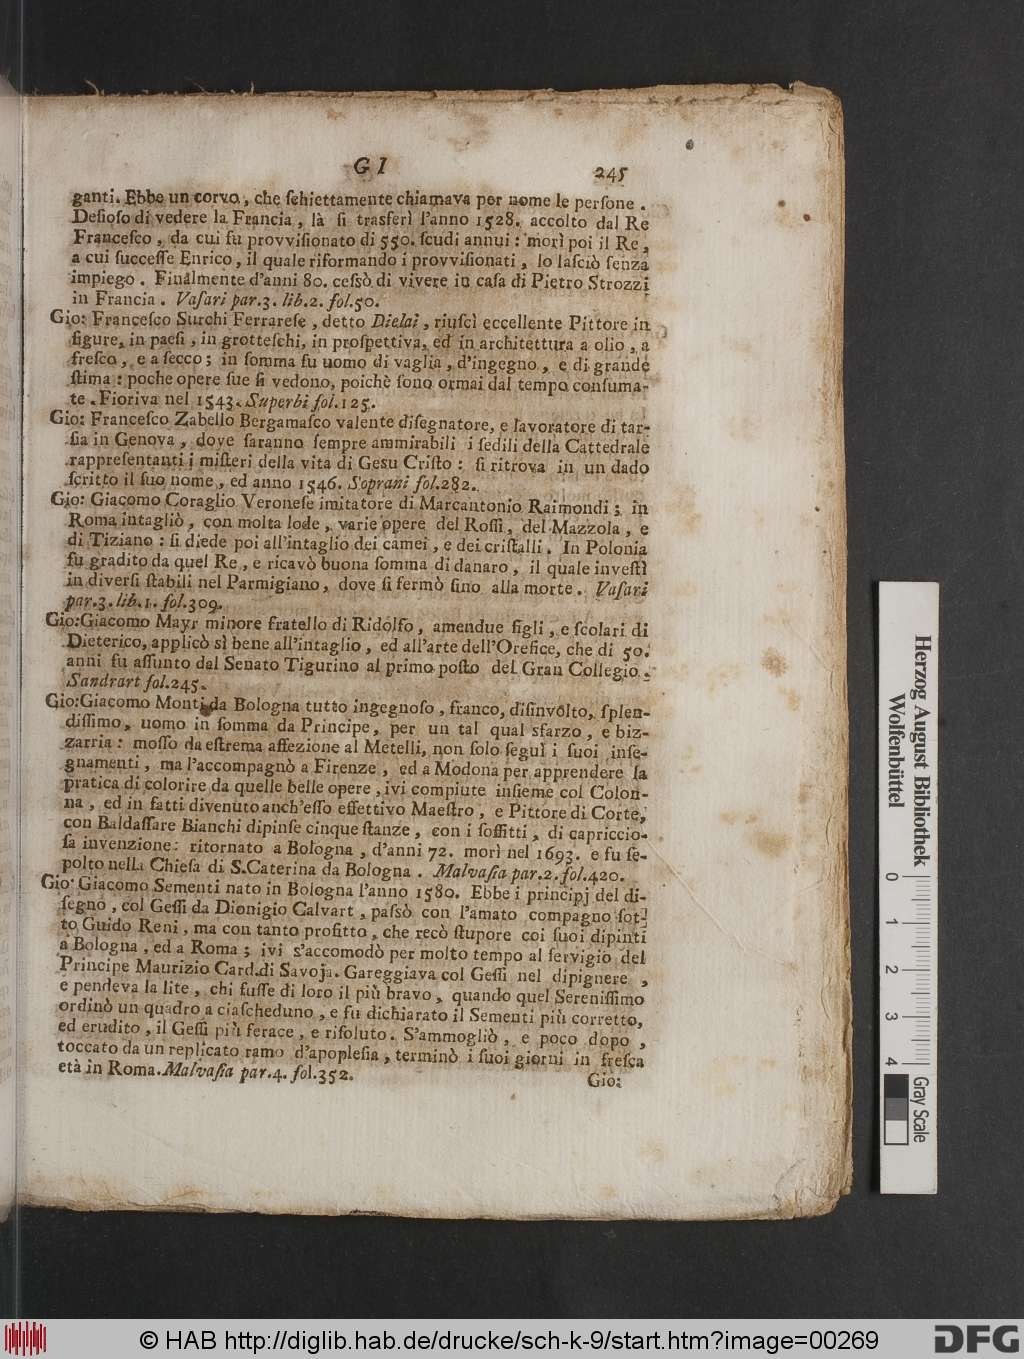 G I
245
ganti. Ebbe un corvo, che ſchiettamente chiamava per nome le perſone.
Deſioſo di vedere la Francia, là ſi trasferì l'anno 1528. accolto dal Re
Franceſco, da cui fu provviſionato di 550. ſcudi annui: morì poi il Re,
a cui ſucceſſe Enrico, il quale riformando i provviſionati, lo laſciò ſenza
impiego. Finalmente d'anni 80. ceſsò di vivere in caſa di Pietro Strozzi
in Francia. Vaſari par.3. lib.2. fol.50.
Gio: Franceſco Surchi Ferrareſe, detto Dielai, riuſcì eccellente Pittore in
figure, in paeſi, in grotteſchi, in proſpettiva, ed in architettura a olio, a
freſco, e a ſecco; in ſomma fu uomo di vaglia, d'ingegno, e di grande
ſtima: poche opere ſue ſi vedono, poichè ſono ormai dal tempo conſuma-
te. Fioriva nel 1543. Superbi fol.125.
Gio: Franceſco Zabello Bergamaſco valente diſegnatore, e lavoratore di tar-
ſia in Genova, dove ſaranno ſempre ammirabili i ſedili della Cattedrale
rappreſentanti i miſteri della vita di Gesu Criſto: ſi ritrova in un dado
ſcritto il ſuo nome, ed anno 1546. Soprani fol.282.
Gio: Giacomo Coraglio Veroneſe imitatore di Marcantonio Raimondi; in
Roma intagliò, con molta lode, varie opere del Roſſi, del Mazzola, e
di Tiziano: ſi diede poi all'intaglio dei camei, e dei criſtalli. In Polonia
fu gradito da quel Re, e ricavò buona ſomma di danaro, il quale inveſtì
in diverſi ſtabili nel Parmigiano, dove ſi fermò ſino alla morte. Vaſari
par.3. lib.1. fol.309.
Gio:Giacomo Mayr minore fratello di Ridolfo, amendue figli, e ſcolari di
Dieterico, applicò sì bene all'intaglio, ed all'arte dell'Orefice, che di 50.
anni fu aſſunto dal Senato Tigurino al primo poſto del Gran Collegio.
Sandrart fol.245.
Gio:Giacomo Monti da Bologna tutto ingegnoſo, franco, diſinvolto, ſplen-
diſſimo, uomo in ſomma da Principe, per un tal qual sfarzo, e biz-
zarria: moſſo da eſtrema affezione al Metelli, non ſolo ſeguì i ſuoi inſe-
gnamenti, ma l'accompagnò a Firenze, ed a Modona per apprendere la
pratica di colorire da quelle belle opere, ivi compiute inſieme col Colon-
na, ed in fatti divenuto anch'eſſo effettivo Maeſtro, e Pittore di Corte,
con Baldaſſare Bianchi dipinſe cinque ſtanze, con i ſoffitti, di capriccio-
ſa invenzione: ritornato a Bologna, d'anni 72. morì nel 1693. e fu ſe-
polto nella Chieſa di S.Caterina da Bologna. Malvaſia par.2. fol.420.
Gio: Giacomo Sementi nato in Bologna l'anno 1580. Ebbe i principj del di-
ſegno, col Geſſi da Dionigio Calvart, paſsò con l'amato compagno ſot-
to Guido Reni, ma con tanto profitto, che recò ſtupore coi ſuoi dipinti
a Bologna, ed a Roma; ivi s'accomodò per molto tempo al ſervigio del
Principe Maurizio Card.di Savoja. Gareggiava col Geſſi nel dipignere,
e pendeva la lite, chi fuſſe di loro il più bravo, quando quel Sereniſſimo
ordinò un quadro a ciaſcheduno, e fu dichiarato il Sementi più corretto,
ed erudito, il Geſſi più ferace, e riſoluto. S'ammogliò, e poco dopo,
toccato da un replicato ramo d'apopleſia, terminò i ſuoi giorni in freſca
età in Roma. Malvaſia par.4. fol.352.
Gio:
Herzog August Bibliothek
Wolfenbüttel
0 1 2 3 4
Gray Scale
© HAB http://diglib.hab.de/drucke/sch-k-9/start.htm?image=00269
DFG